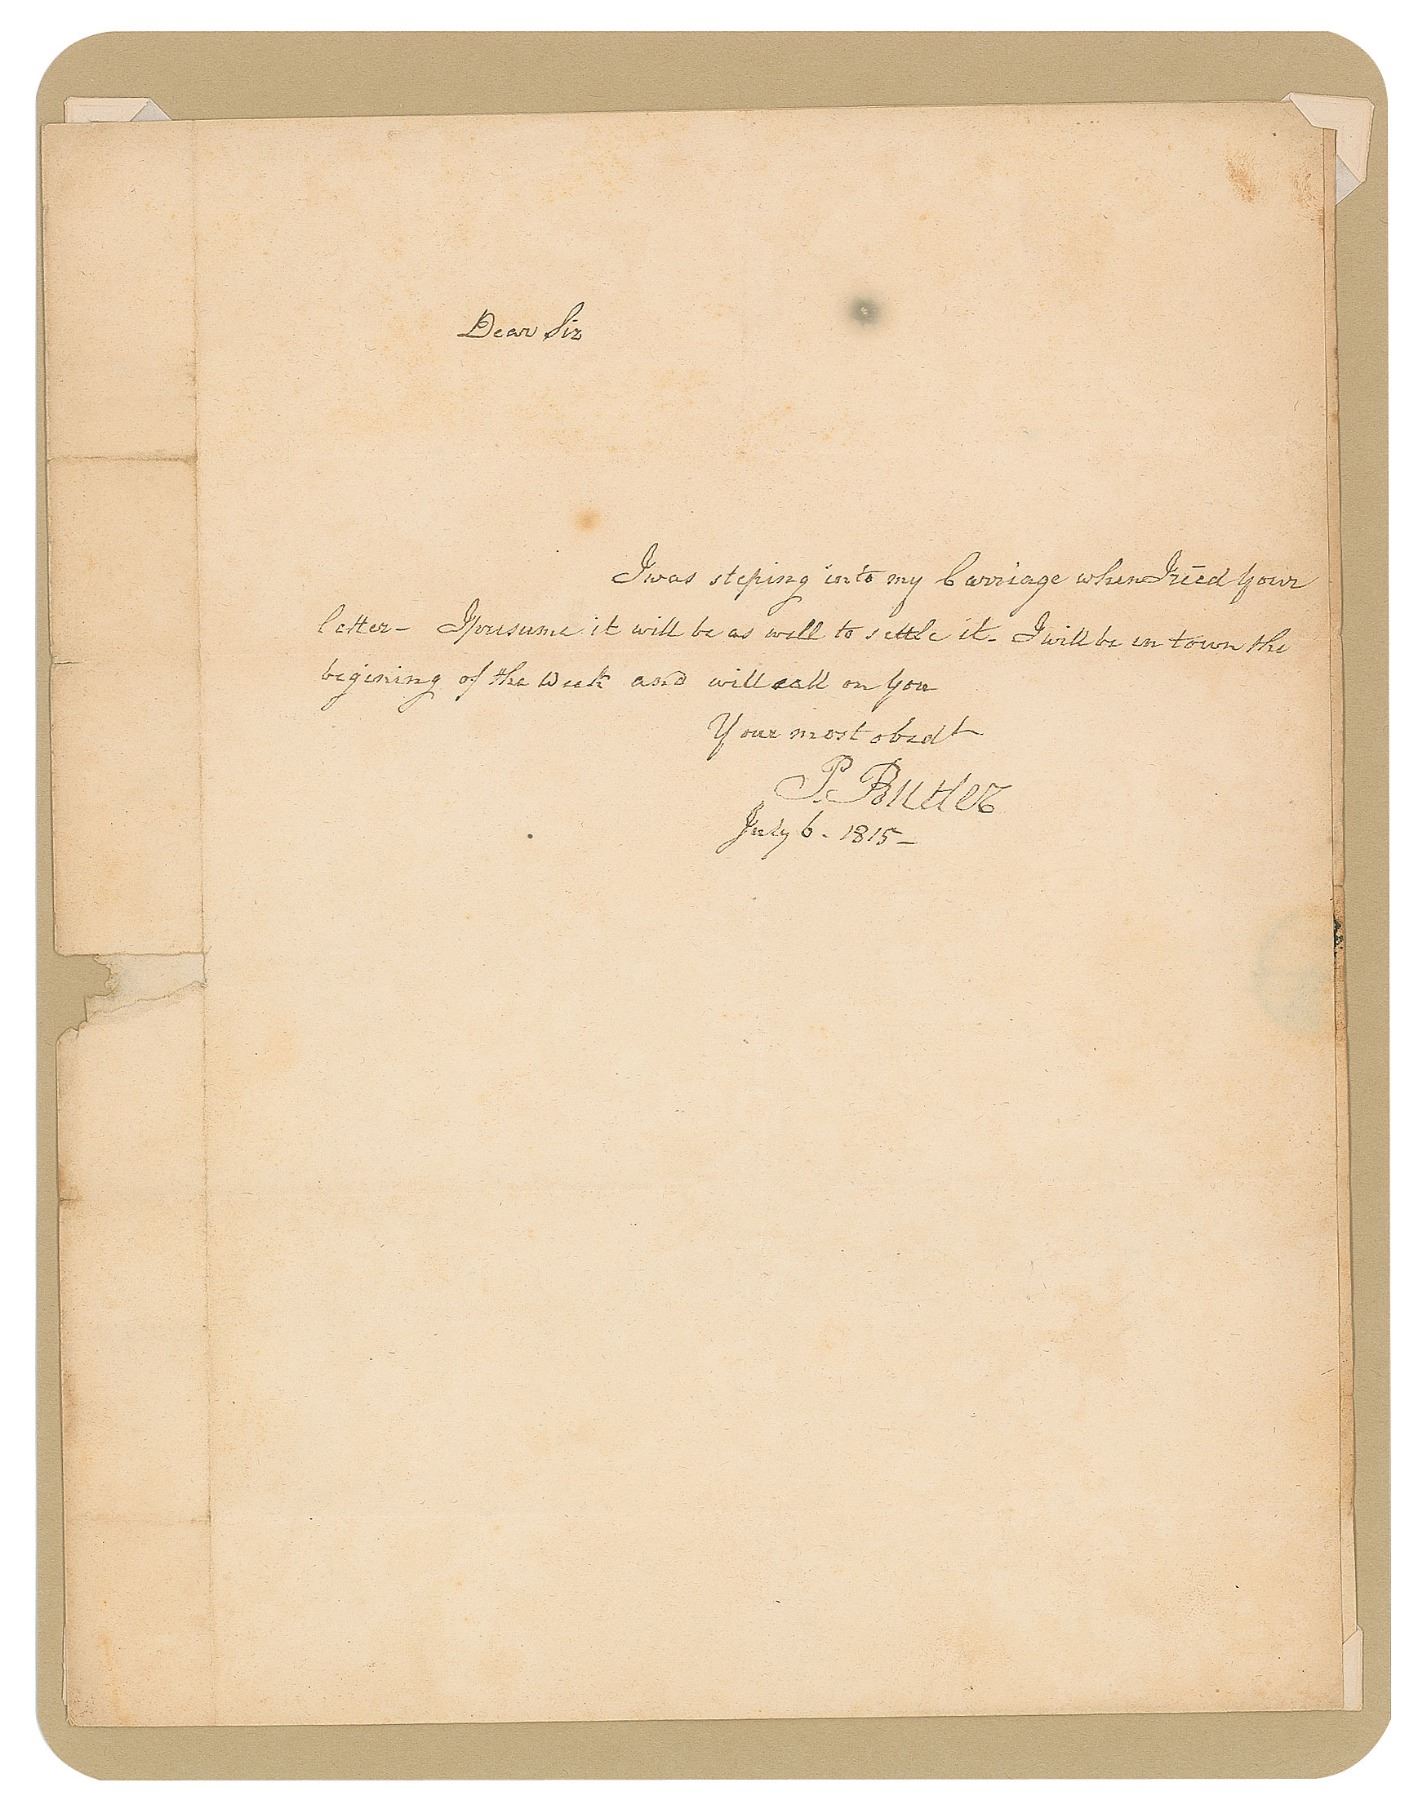 Dear Sir
I was steping into my Carriage when I recd your
letter- I presume it will be as well to settle it- I will be in town the
begining of the Week and will call on you
Your most obedt
P. Butler
July 6 - 1815-